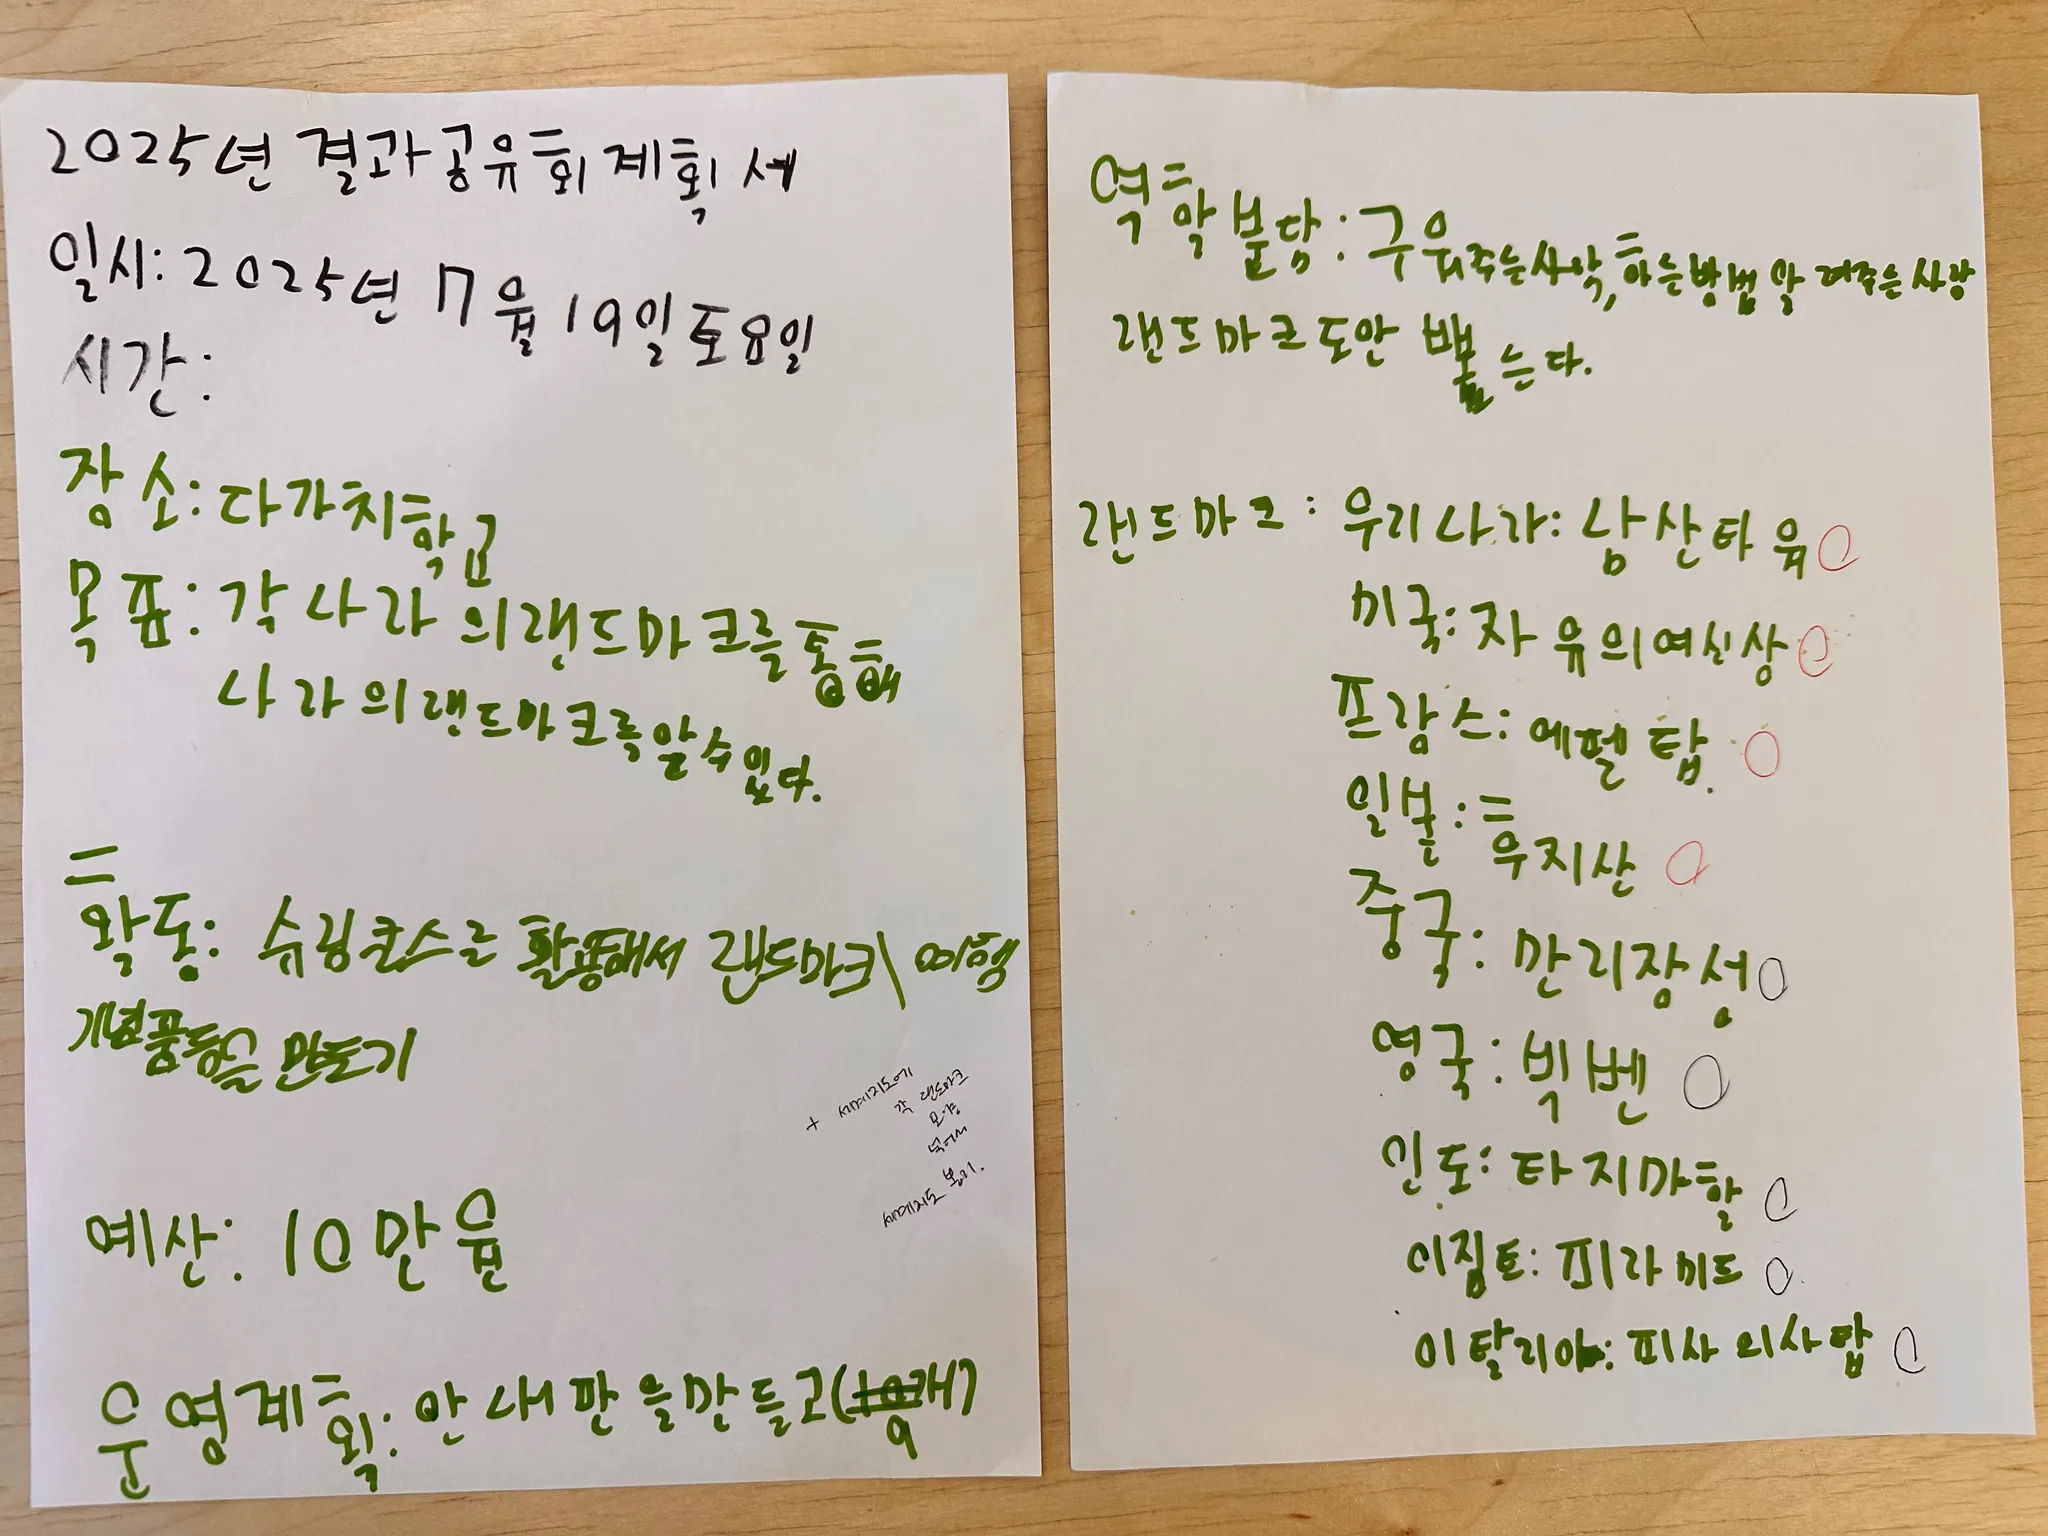 2025년 결과공유회 계획서
일시: 2025년 7월 19일 토요일
시간:
장소: 다가치학교
목표: 각 나라의 랜드마크를 통해
나라의 랜드마크를 알 수 있다.
활동: 슈링클스를 활용해서 랜드마크\ 여행
기념품등을 만들기
+ 세계지도에
각 랜드마크
모양
넣어서
세계지도 붙이기.
예산: 10만원
운영계획: 안내판을 만들고(9개)
역학분담: 구워주는사락, 하는방법 알려주는 사랑
랜드마크 도안 뽑는다.
랜드마크: 우리나라: 남산타워
미국: 자유의여신상
프랑스: 에펠탑.
일본: 후지산
중국: 만리장성
영국: 빅벤
인도: 타지마할
이집트: 피라미드
이탈리아: 피사의사탑